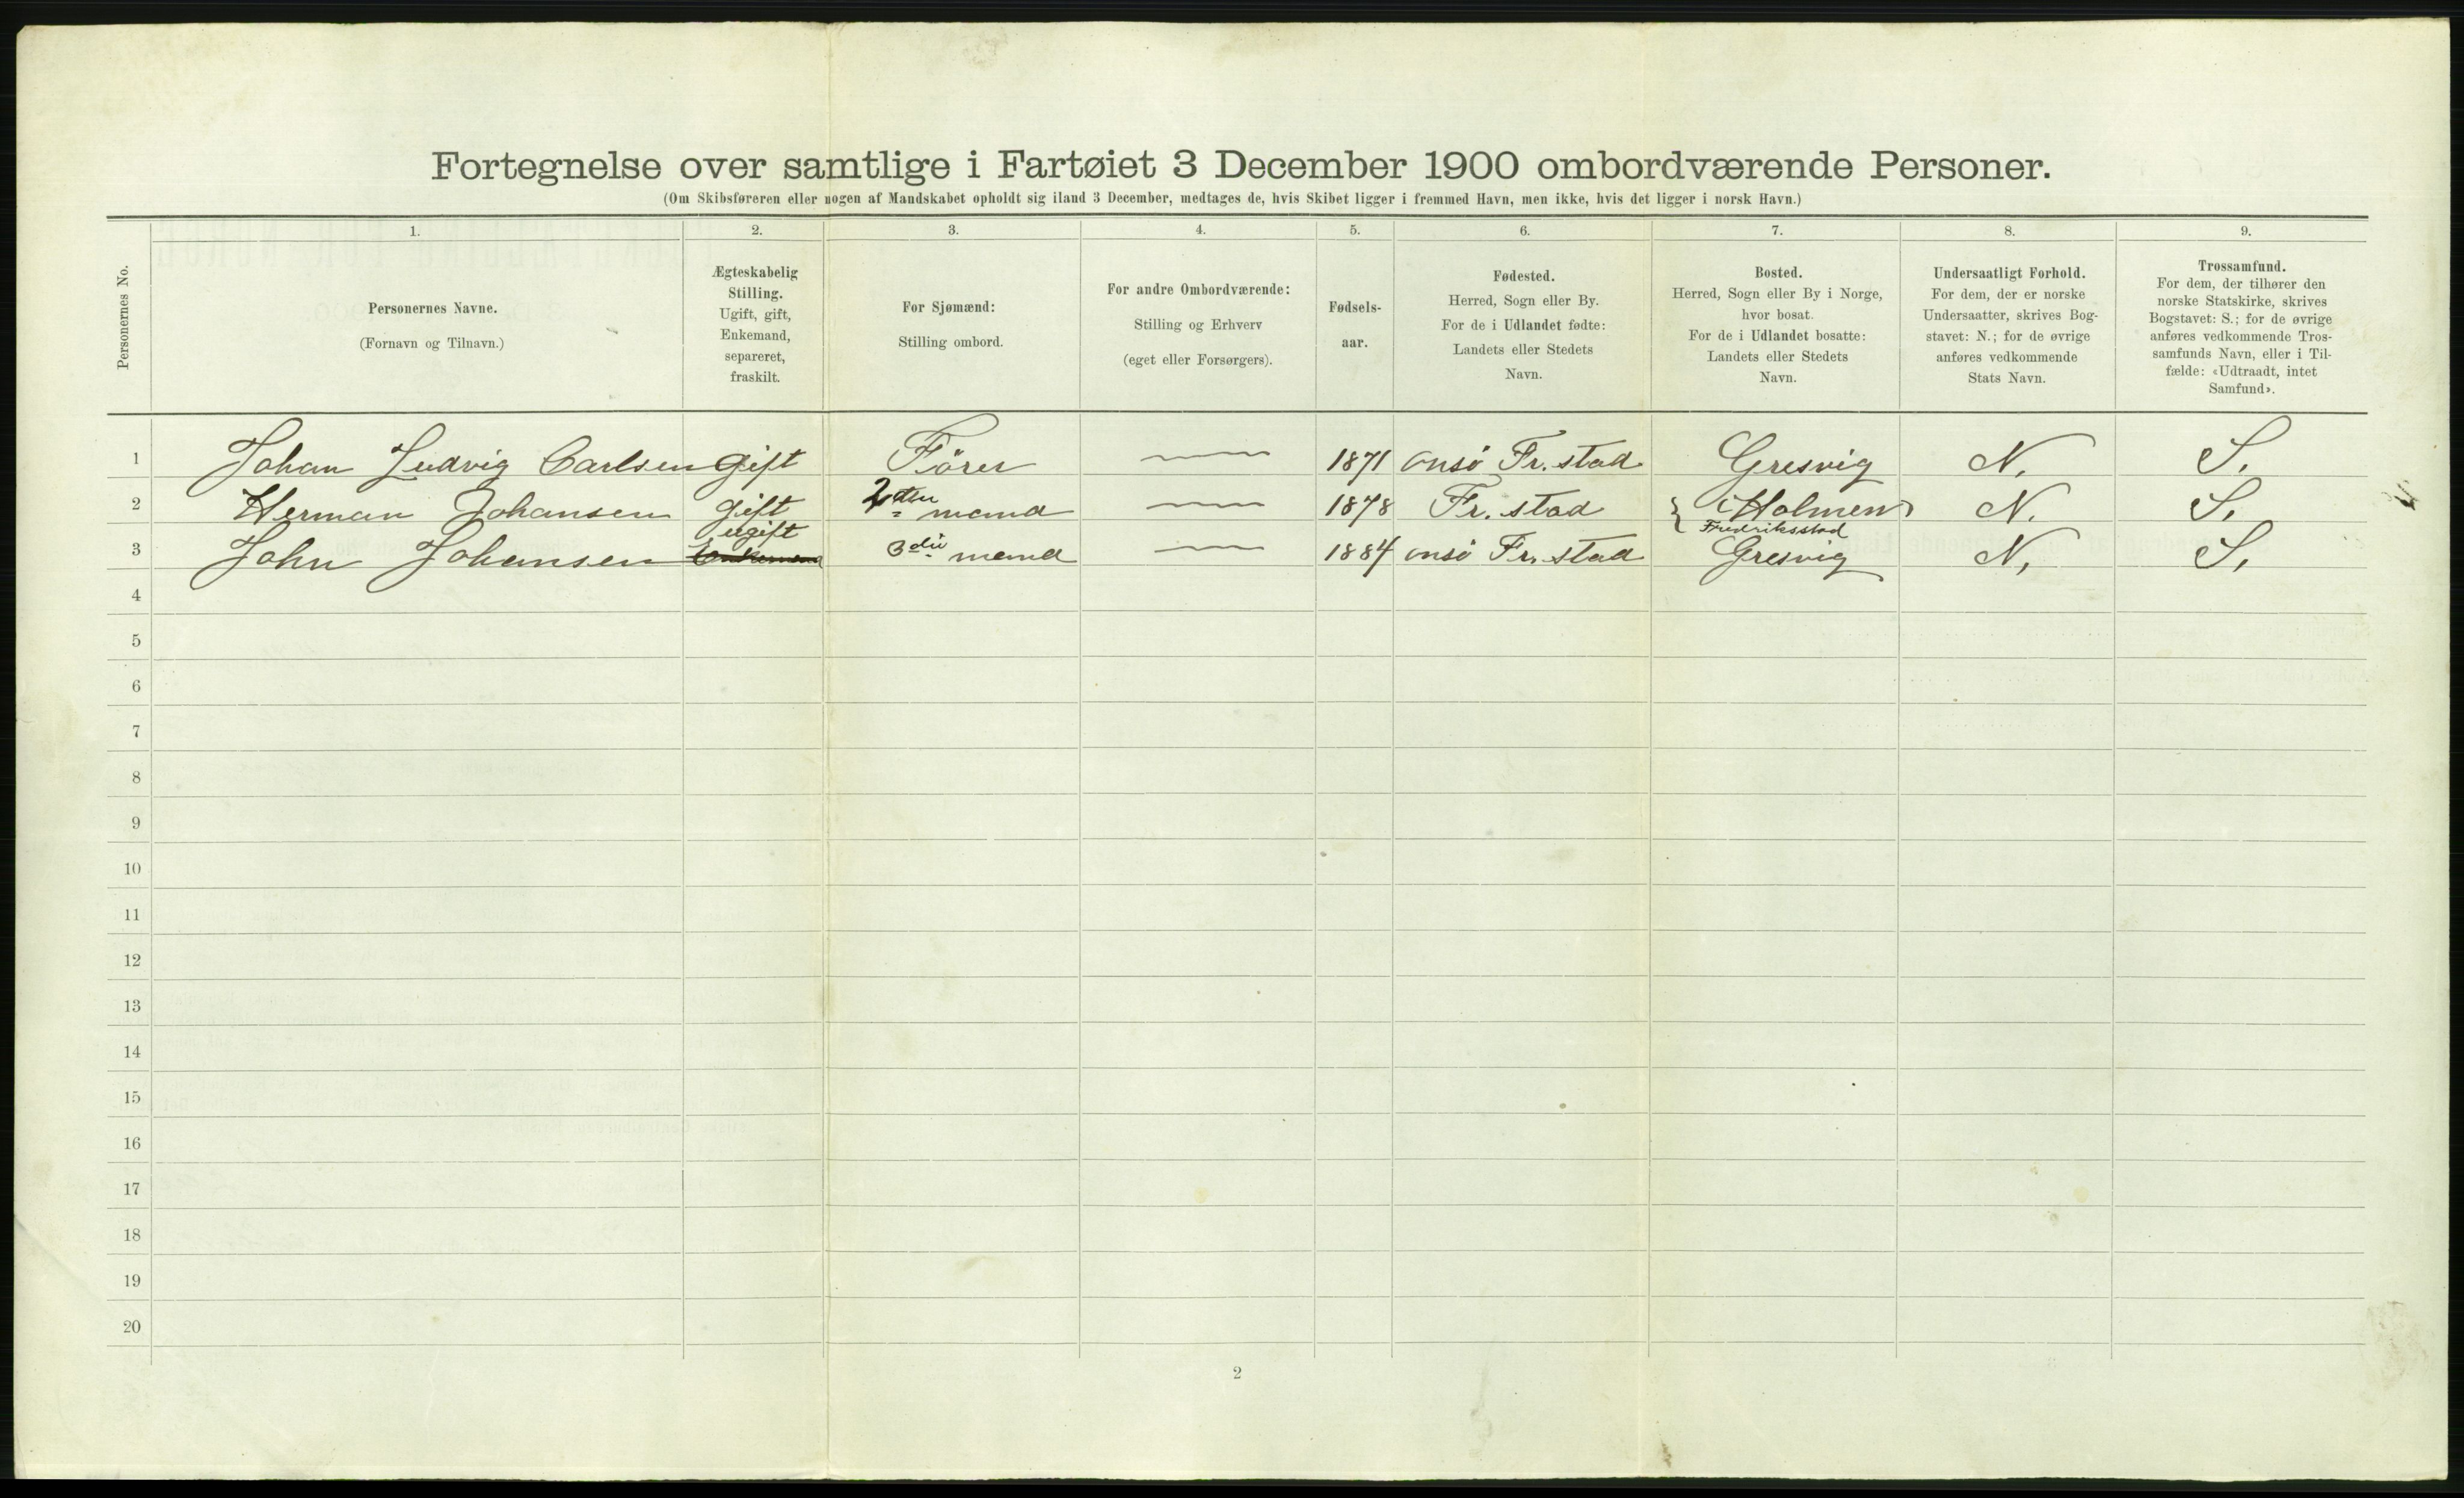 Fortegnelse over samtlige i Fartøiet 3 December 1900 ombordværende Personer.
(Om Skibsføreren eller nogen af Mandskabet opholdt sig iland 3 December, medtages de, hvis Skibet ligger i fremmed Havn, men ikke, hvis det ligger i norsk Havn.)
Personernes No.
1.
Personernes Navne.
(Fornavn og Tilnavn.)
2.
Ægteskabelig
Stilling.
Ugift, gift,
Enkemand,
separeret,
fraskilt.
3.
For Sjømænd:
Stilling ombord.
4.
For andre Ombordværende:
Stilling og Erhverv
(eget eller Forsørgers).
5.
Fødsels-
aar.
6.
Fødested.
Herred, Sogn eller By.
For de i Udlandet fødte:
Landets eller Stedets
Navn.
7.
Bosted.
Herred, Sogn eller By i Norge,
hvor bosat.
For de i Udlandet bosatte:
Landets eller Stedets
Navn.
8.
Undersaatligt Forhold.
For dem, der er norske
Undersaatter, skrives Bog-
stavet: N.; for de øvrige
anføres vedkommende
Stats Navn.
9.
Trossamfund.
For dem, der tilhører den
norske Statskirke, skrives
Bogstavet: S.; for de øvrige
anføres vedkommende Tros-
samfunds Navn, eller i Til-
fælde: «Udtraadt, intet
Samfund».
1 Johan Ludvig Carlsen gift Förer — 1871 onsö Fr. stad Gresvig N. S.
2 Herman Johansen gift 2den mand — 1878 Fr. stad { Holmen N. S.
Fredriksstad
ugift
3 John Johansen Enkemand 3die mand — 1884 onsö Fr. stad Gresvig N, S,
4
5
6
7
8
9
10
11
12
13
14
15
16
17
18
19
20
2